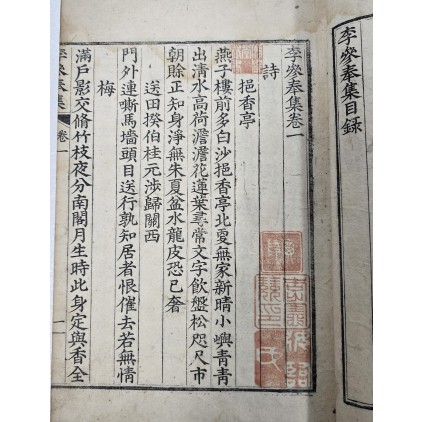 李參奉集目錄
李參奉集卷一
詩
挹香亭
燕子樓前多白沙挹香亭北夏無家新晴小嶼青青
出清水高荷澹澹花蓮葉尋常文字飲盤松咫尺市
朝賒正知身淨無朱夏盆水龍皮恐已奢
送田揆伯桂元涉歸關西
門外連嘶馬墻頭目送行孰知居者恨催去若無情
梅
滿戶影交脩竹枝夜分南閣月生時此身定與香全
李參奉集
卷一
一